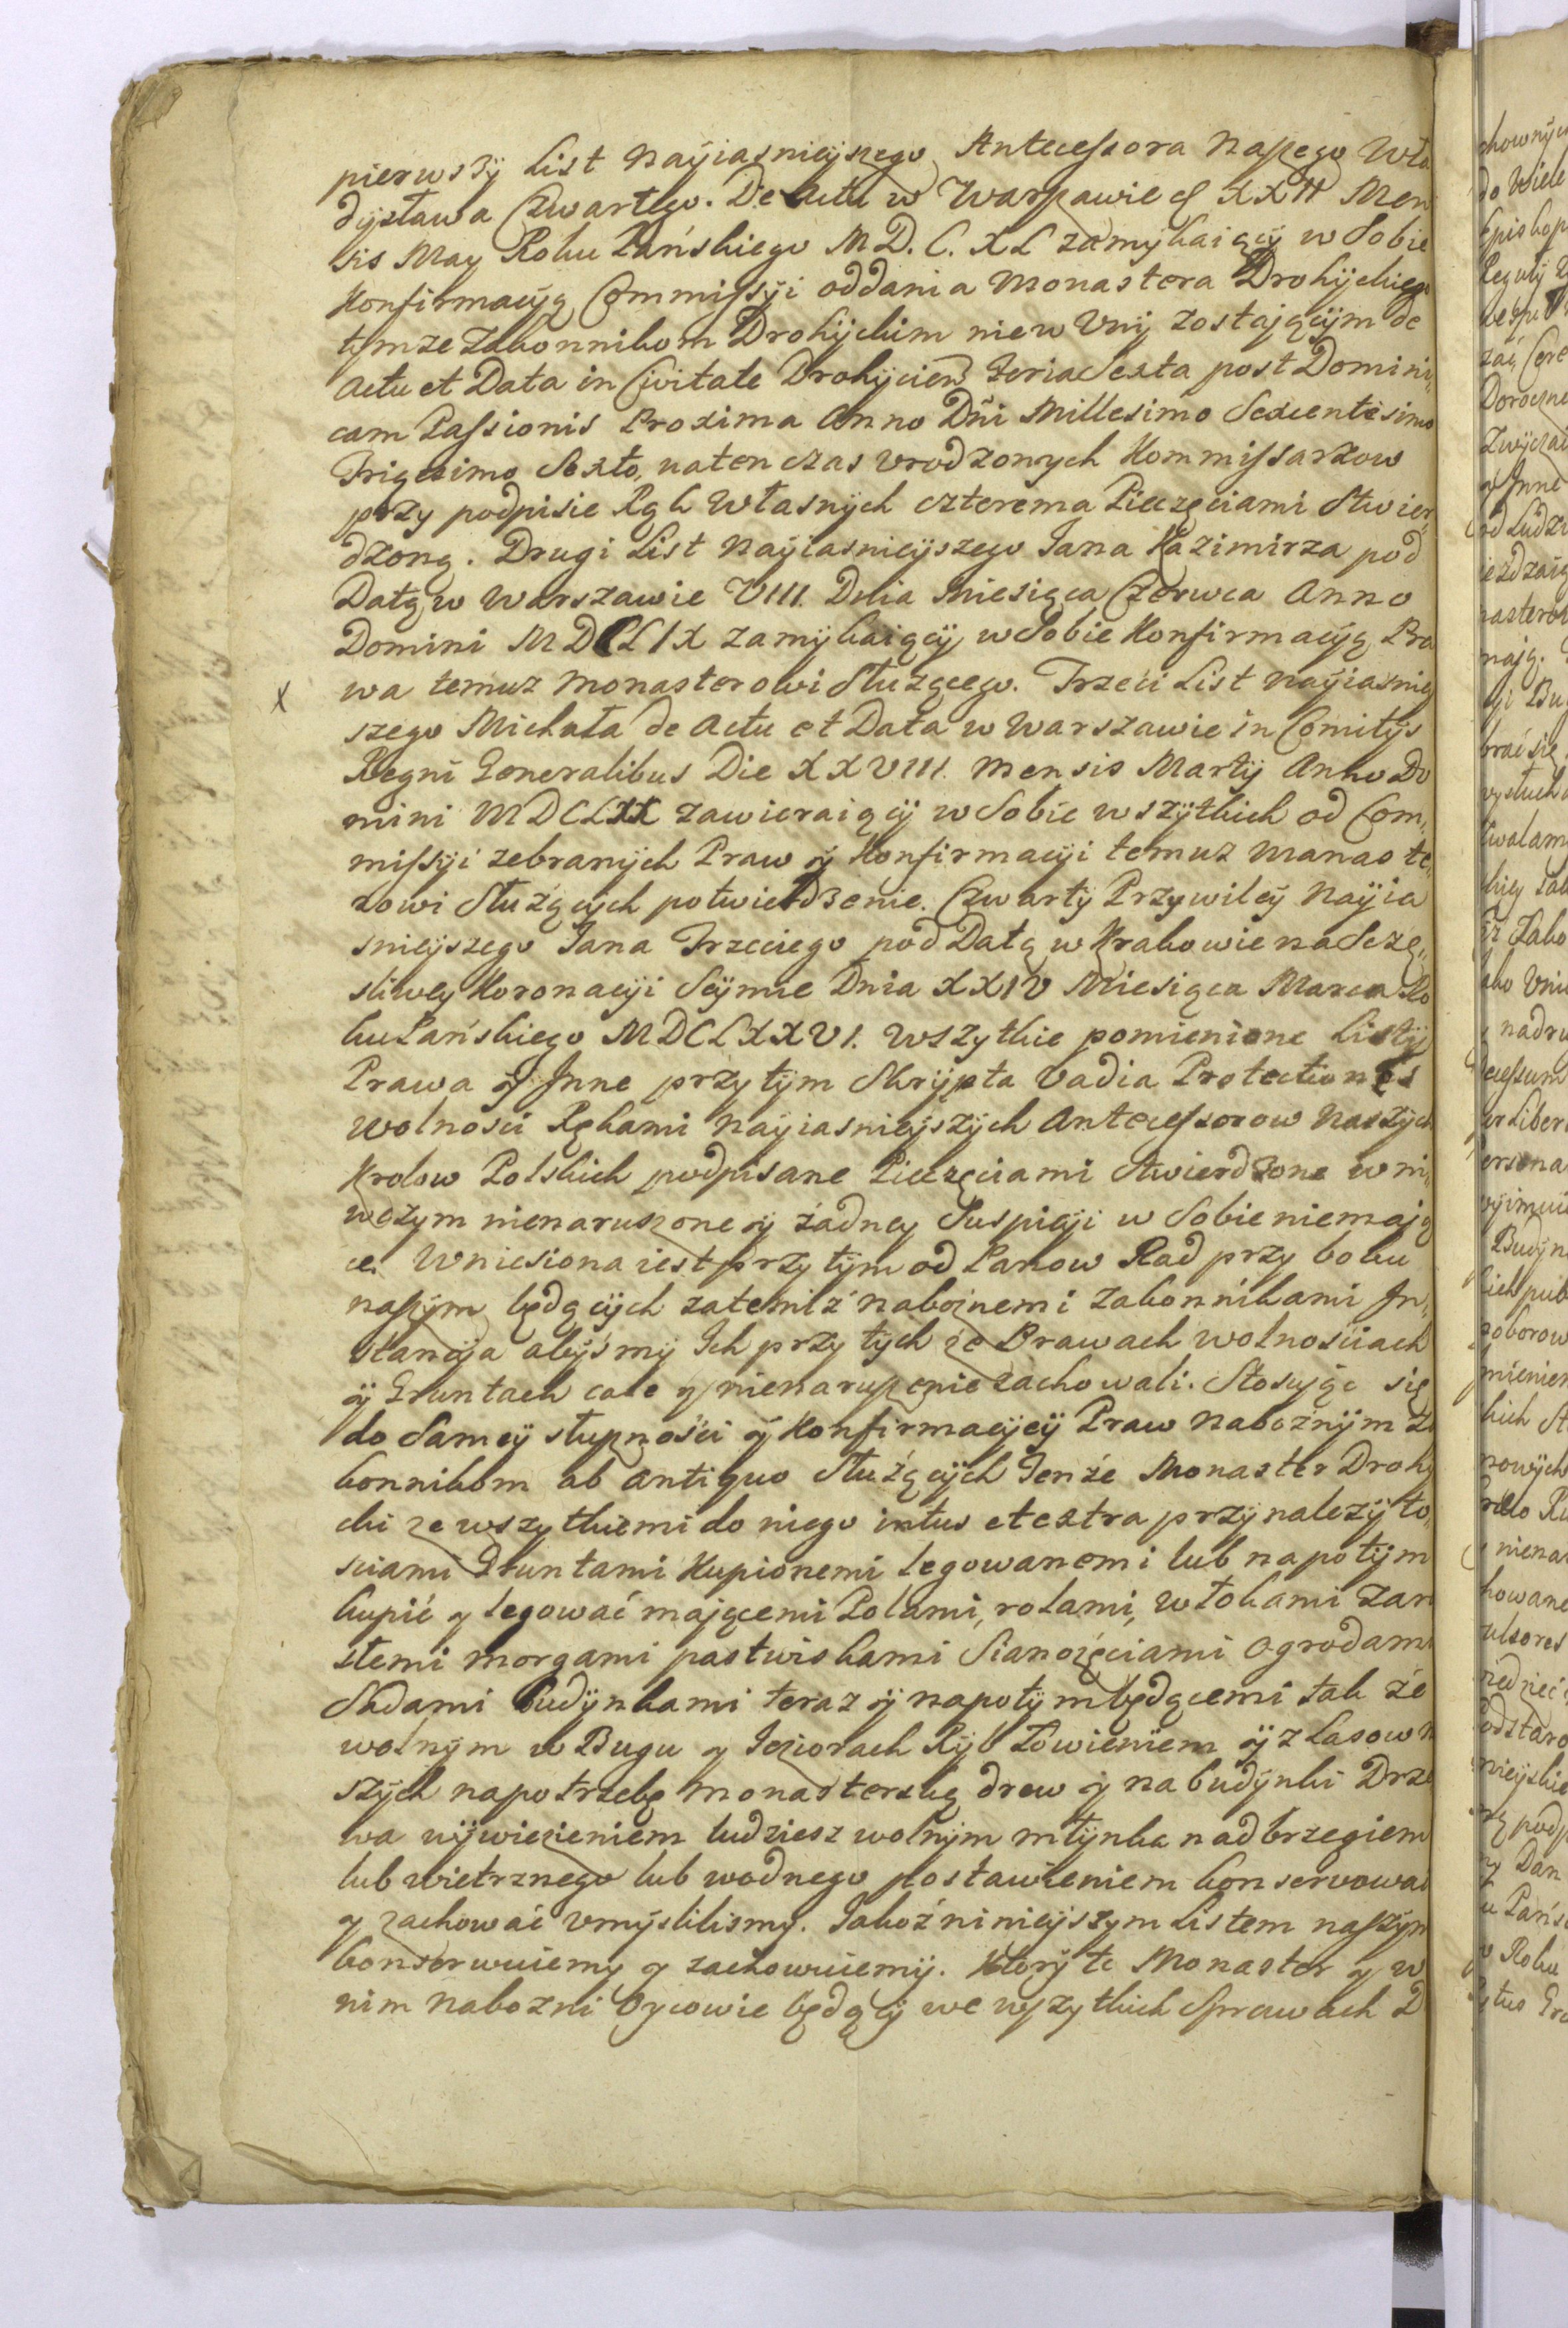 pierwszÿ List Naÿiasnieÿszego Antecessora Naszego Wła
dysława Czwartego. De Actu w Warszawie d XXII Men
sis May Roku Pańskiego MD. C. XL zamÿkaiącÿ w Sobie
Konfirmacÿą Commissÿi oddania Monastera Drohÿckiego
tymze Zakonnikom Drohÿckim nie w Vnÿ zostającÿm de
Actu et Data in Civitate Drohÿcien Feria Sexta post Domini,
cam Passionis Proxima Anno Dñi Millesimo Sexcentesimo
Trigesimo Sexto, naten czas vrodzonych Kommissarzow
przy podpisie Rąk Własnÿch czterema Pieczęciami Stwier,
dzoną. Drugi List Naÿiasnieÿszego Jana Kazimirza pod
Datą w Warszawie VIII. Dnia Miesiąca Czerwca Anno
Domini MDCLIX zamÿkaiącÿ w Sobie Konfirmacÿą Pra
x wa temuz Monasterowi Służącego. Trzeci List Naÿiasnieÿ
szego Michała de Actu et Data w Warszawie in Comitÿs
Regni Generalibus Die XXVIII. Mensis Martÿ Anno Do
mini MDCLXX zawieraiącÿ w Sobie wszÿtkich od Com,
missÿi zebranÿch Praw ÿ Konfirmacÿi temuz Manaste,
rowi Służącÿch potwierdzenie. Czwartÿ Przywileÿ Naÿia
snieÿszego Jana Trzeciego pod Datą w Krakowie na Szczę,
sliweÿ Koronacÿi Seÿmie Dnia XXIV Miesiąca Marca Ro
ku Pańskiego MDCLXXVI. Wszytkie pomienione Listÿ
Prawa ÿ Jnne przytÿm Skrÿpta Vadia Protectiones
wolnosci Rękami Naÿiasnieÿszÿch Antecessorow Naszÿch
Krolow Polskich podpisane Pieczęciami Stwierdzone w ni,
wczym nienaruszone ÿ żadneÿ Suspicÿi w Sobie niemają
ce. Wniesiona iest przytÿm od Panow Rad przy boku
naszÿm będącÿch zatemiż nabożnemi Zakonnikami Jn,
stancÿja abÿśmÿ Ich przy tÿch że Prawach wolnościach
ÿ Gruntach całe ÿ nienaruszenie zachowali. Stosując się
do Sameÿ słusznośći ÿ Konfirmacÿeÿ Praw Nabożnÿm Za
konnikom ab antiquo Służącÿch Tenże Monaster Drohÿ
cki ze wszytkiemi do niego intus et extra przÿnalezÿto,
sciami Gruntami Kupionemi legowanemi lub napotÿm
kupić ÿ legować mającemi Polami, rolami, włokami Zaro
slemi morgami pastwiskami Sianożęciami Ogrodami
Sadami budÿnkami teraz ÿ napotÿm będącemi tak że
wolnÿm w Bugu ÿ Jeziorach Rÿb Łowieniem ÿ z Lasow n
szÿch napotrzebę Monasterską drew ÿ na budÿnki Drze
wa wÿwiezieniem tudziesz wolnÿm młÿnka nad brzegiem
lub wietrznego lub wodnego postawieniem konserwować
ÿ zachować vmÿslilismy. Jakoż niniejszym Listem naszÿm
konserwuiemy ÿ zachowuiemÿ. Ktorÿ te Monaster ÿ w
nim nabożni Oycowie będącÿ we wszytkich Sprawach D